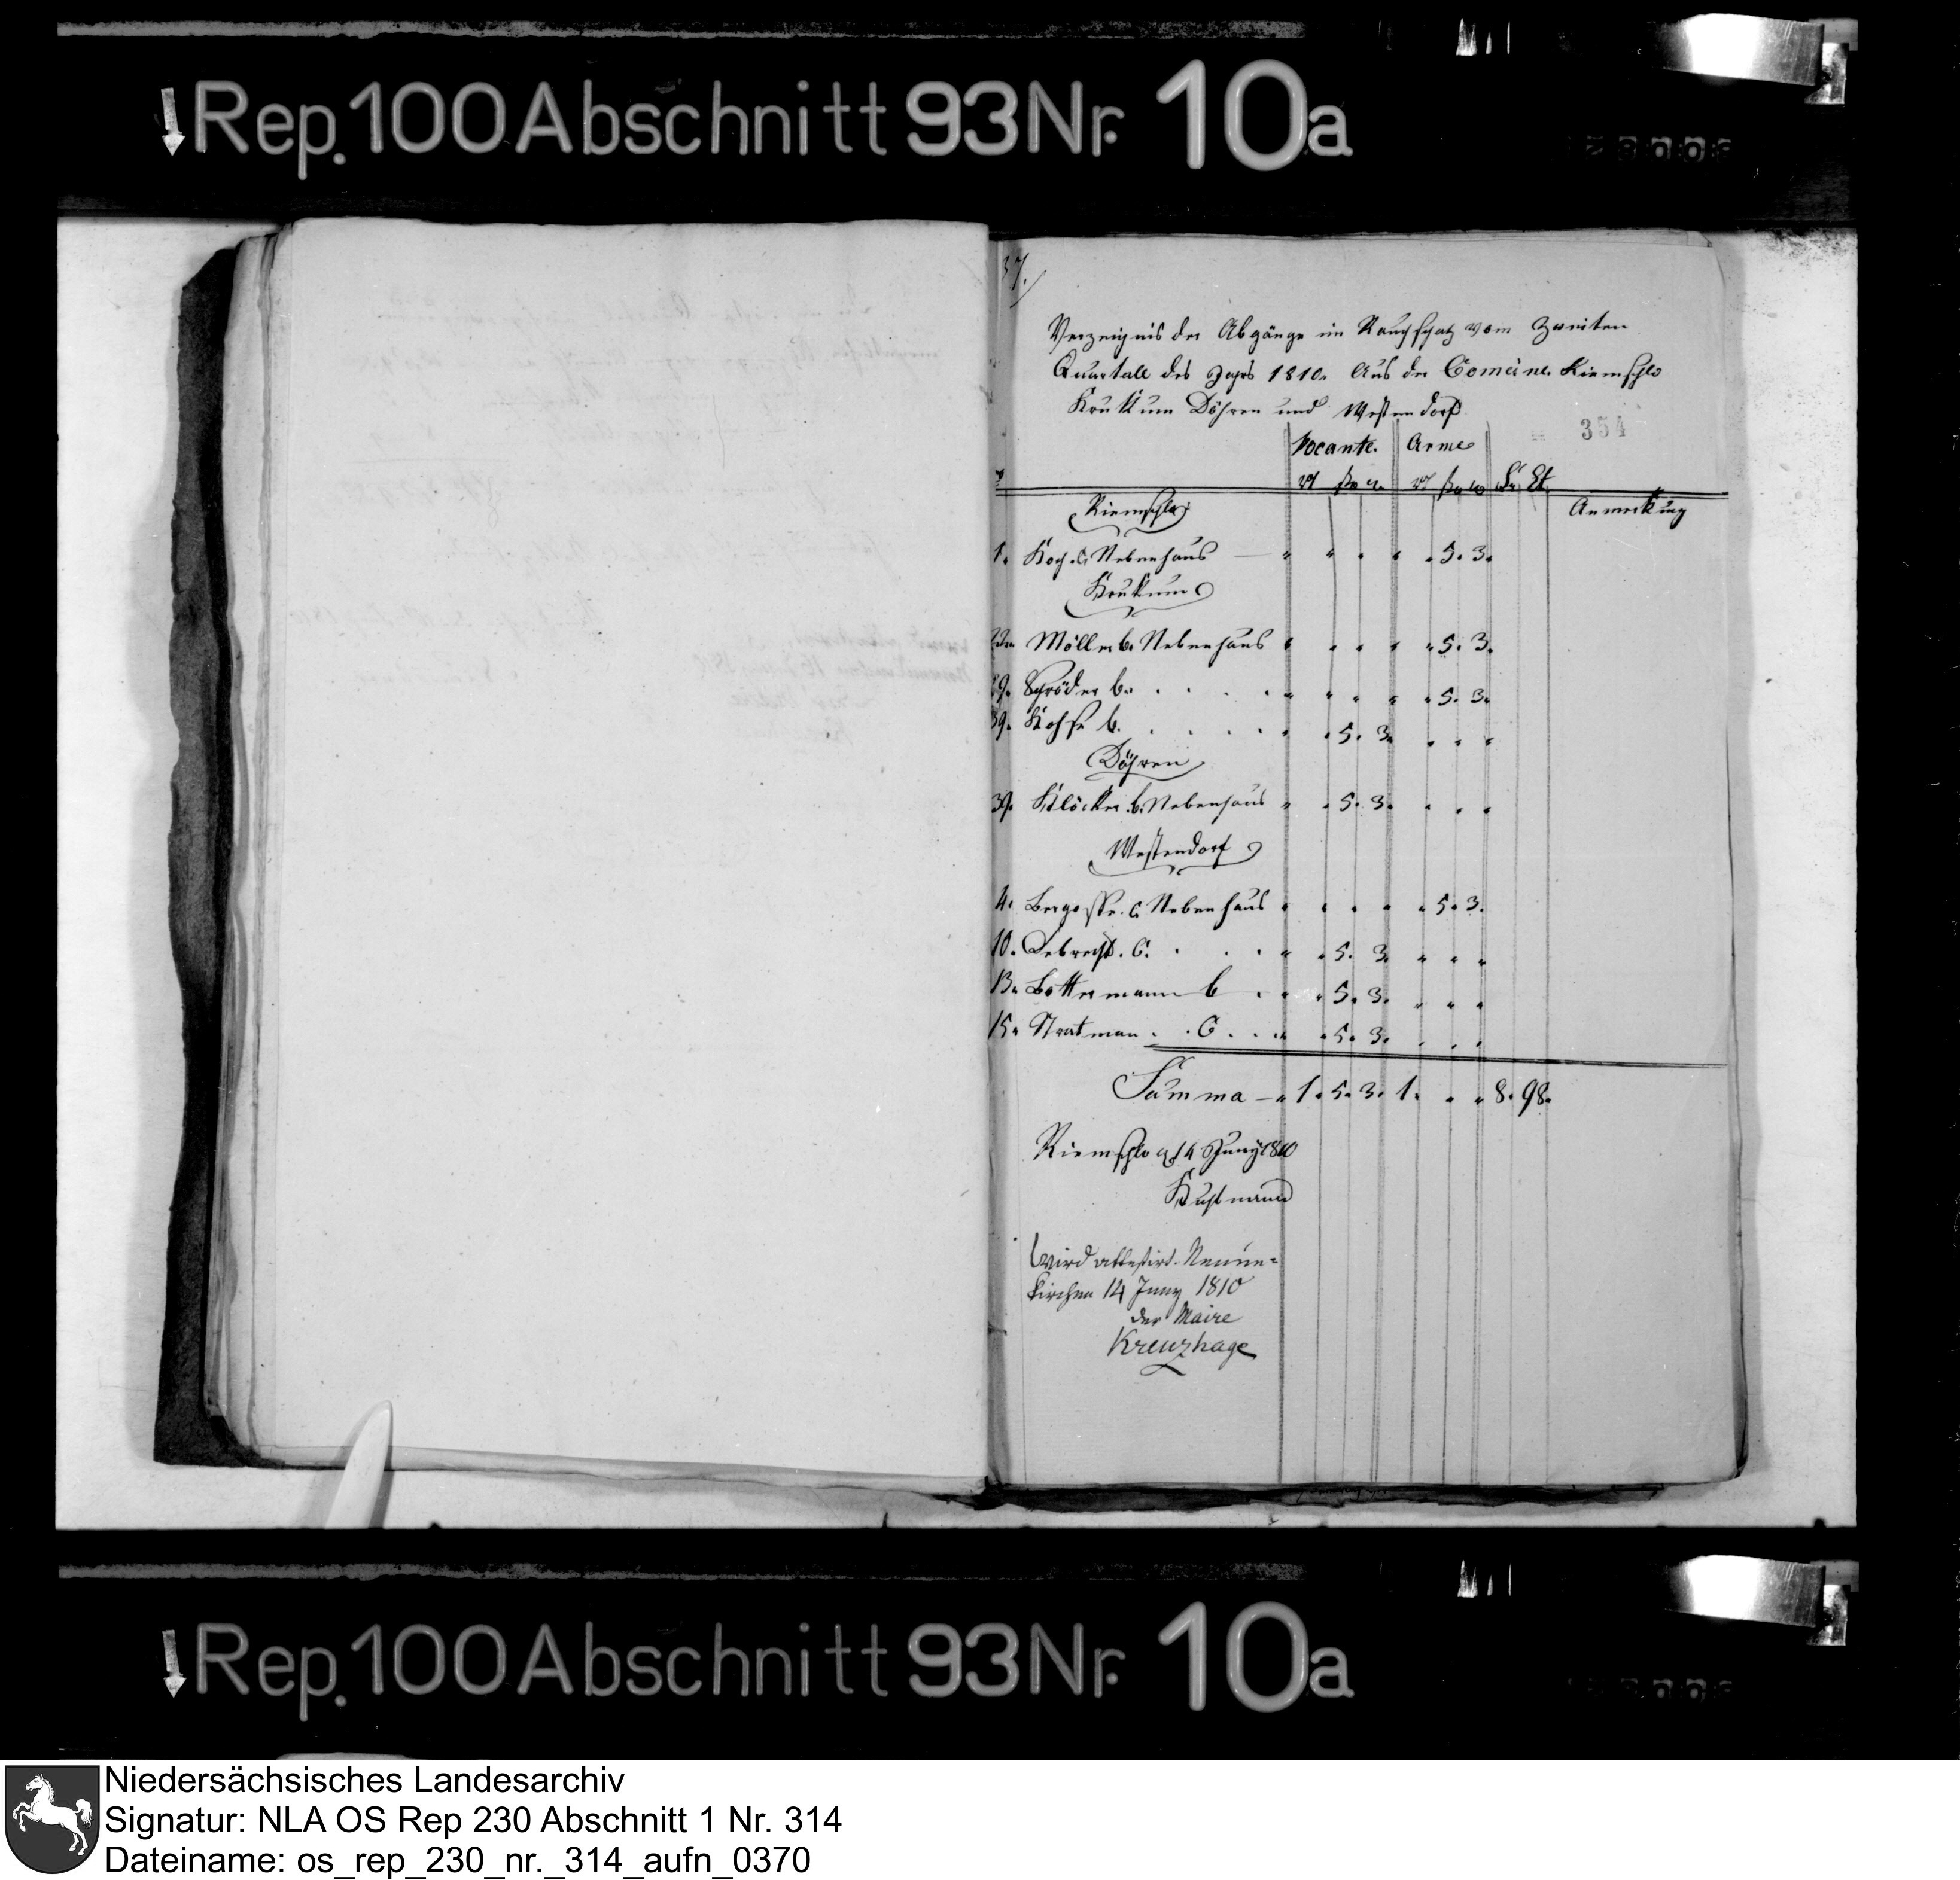 Rep. 100 Abschnitt 93 Nr. 10a
37.
Verzeichnis der Abgänge im Rauchschatz vom Zweiten
Quartall des Jahrs 1810. Aus der Comeine Riemschlo
Krukum Döhren und Westendorf
354
Vocante. Arme
Fr. Ct.
Anmerkung
Riemschlo
1. Koch. C. Nebenhaus — " " " " " 5. 3.
Krukum
Möller b. Nebenhaus " " " " " 5. 3.
Schröder b. " " " " " 5. 3.
39. b. " " 5. 3. " " "
Döhren
39. Klöcker b. Nebenhaus " " 5. 3. " " "
Westendorf
4. C Nebenhaus " " " " " 5. 3.
10. C. " " 5. 3. " " "
13. Bottermann b " " 5. 3. " " "
15. Stratman . . C . . . " " 5. 3. " " "
Summa — " 1. 5. 3. 1. " " 8. 98.
Riemschlo 14 Juny 1810
Wird attestirt. Neuen=
kirchen 14 Juny 1810
der Maire
Kreuzhage
Rep. 100 Abschnitt 93 Nr. 10a
Niedersächsisches Landesarchiv
Signatur: NLA OS Rep 230 Abschnitt 1 Nr. 314
Dateiname: os_rep_230_nr._314_aufn_0370